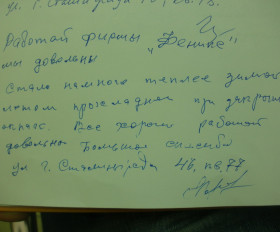 ул. Г. Сталинграда
Работой фирмы „Феникс“
мы довольны
Стало намного теплее зимой
летом прохладнее при закрытых
окнах. Все хорошо работой
довольны Большое спасибо
ул Г. Сталинграда 46, кв. 77